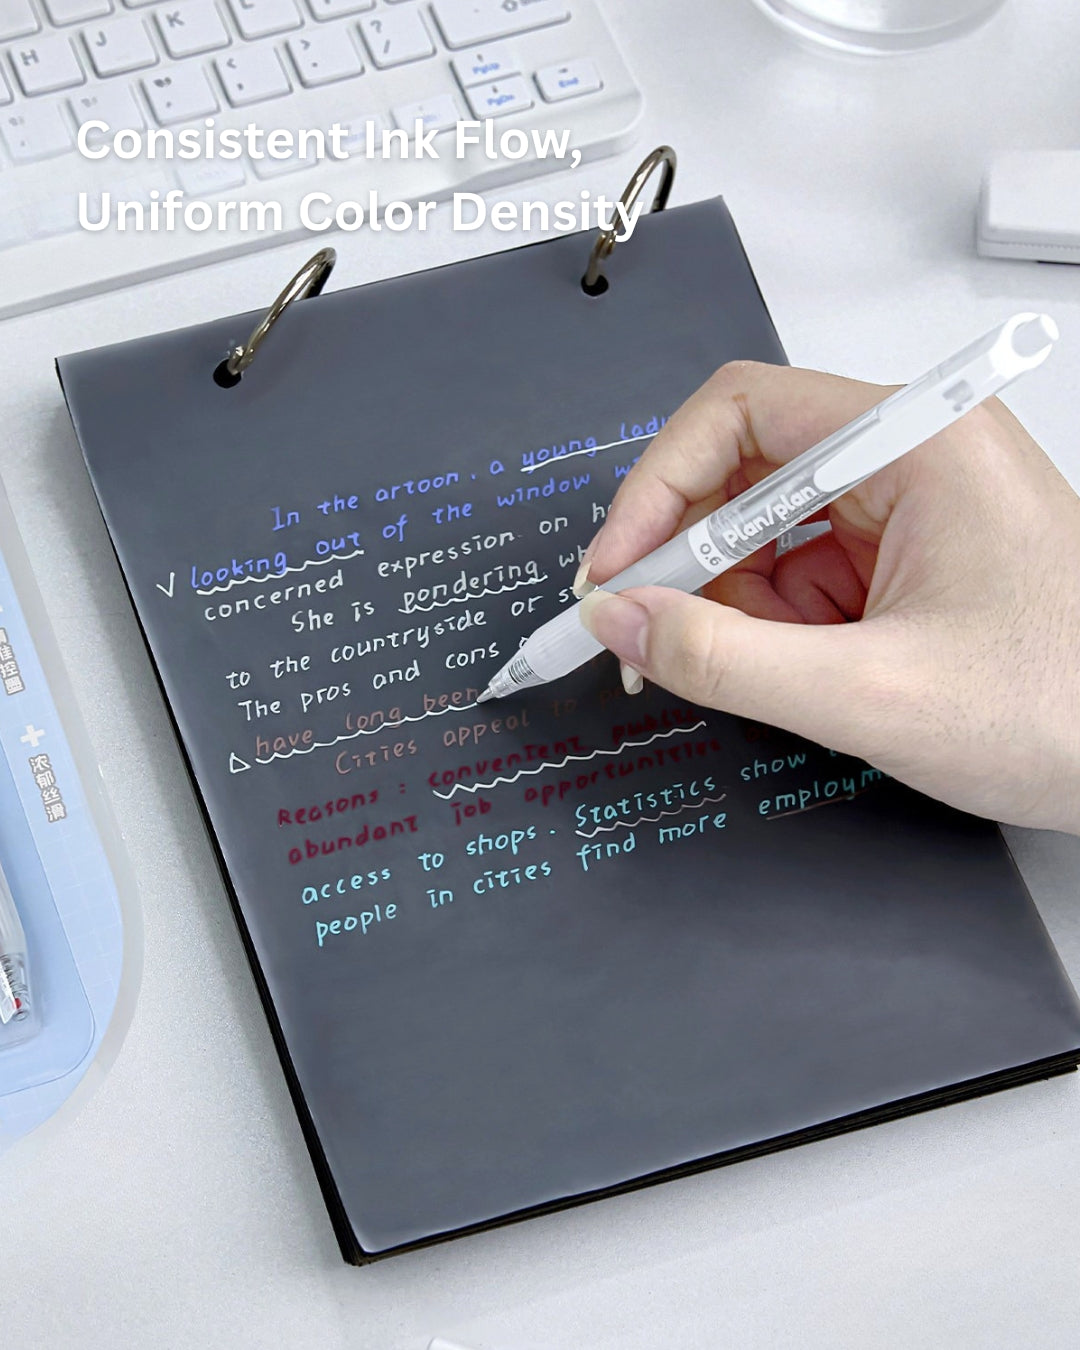 Consistent Ink Flow,
Uniform Color Density
H J K L
< > ? /
PgUp
PgDn
End
In the artoon, a young lady
looking out of the window
concerned expression on
She is pondering
to the countryside or
The pros and cons
have long been
Cities appeal to
Reasons : convenient public
abundant job opportunities
access to shops. Statistics show
people in cities find more
plan/plan
0.6
浓郁丝滑